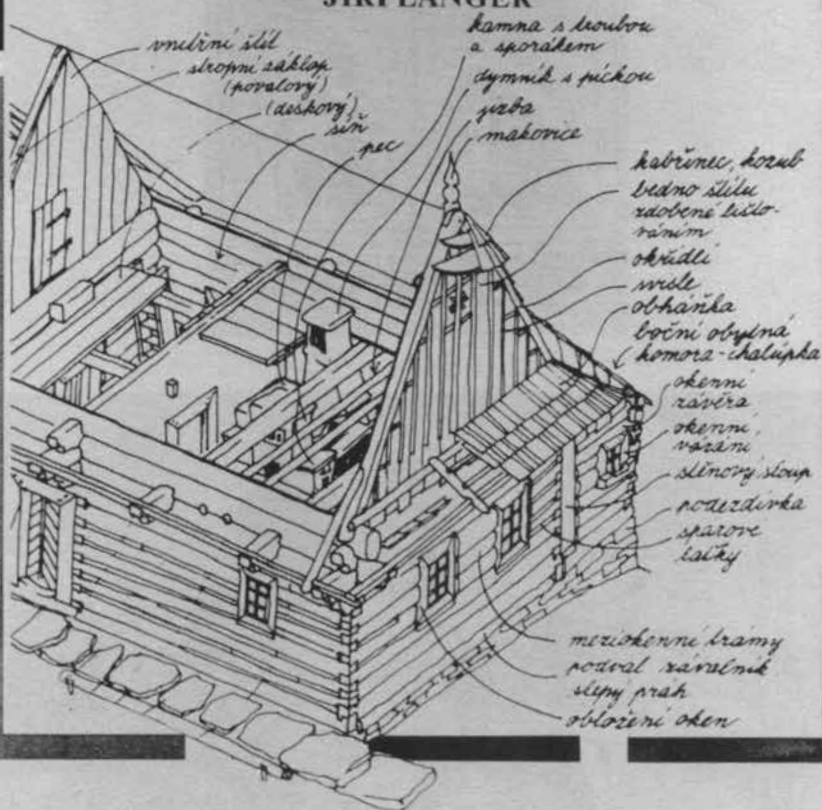 JIŘÍ LANGER
vnitřní štít
stropní záklop
(povalový)
(deskový)
síň
pec
kamna s troubou
a sporákem
dymník s pickou
jizba
makovice
kabřinec, kozub
bedno štítu
zdobené lišto-
váním
okřídlí
svisle
obháňka
boční obytná
komora-chalúpka
okenní
závěra
okenní
vázání
stěnový sloup
podezdívka
spárové
laťky
meziokenní trámy
podval závalník
slepý práh
obložení oken